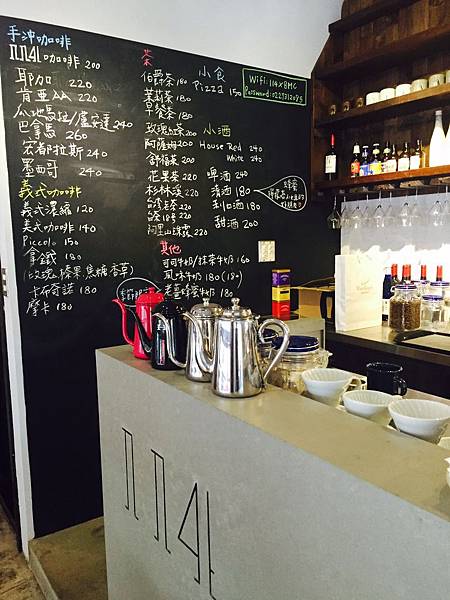 手沖咖啡
咖啡 200
耶加 220
肯亞AA 220
瓜地馬拉/盧安達 240
巴拿馬 260
宏都拉斯 240
墨西哥 240
義式咖啡
義式濃縮 120
美式咖啡 140
Piccolo 150
拿鐵 180
(玫瑰 榛果 焦糖 香草)
卡布奇諾 180
摩卡 180
茶
伯爵茶 180
茉莉茶 180
早餐茶 180
玫瑰紅茶 200
阿薩姆 240
花果茶 220
杉林溪 220
阿里山珠露 220
其他
可可牛奶/抹茶牛奶 160
風味牛奶 180 (180)
老薑蜂蜜牛奶 180
小食
Pizza 150
小酒
House Red 240
White 240
啤酒 240
清酒 180
利口酒 180
甜酒 200
WIFI: 114XBMC
Password: 0225312085
114